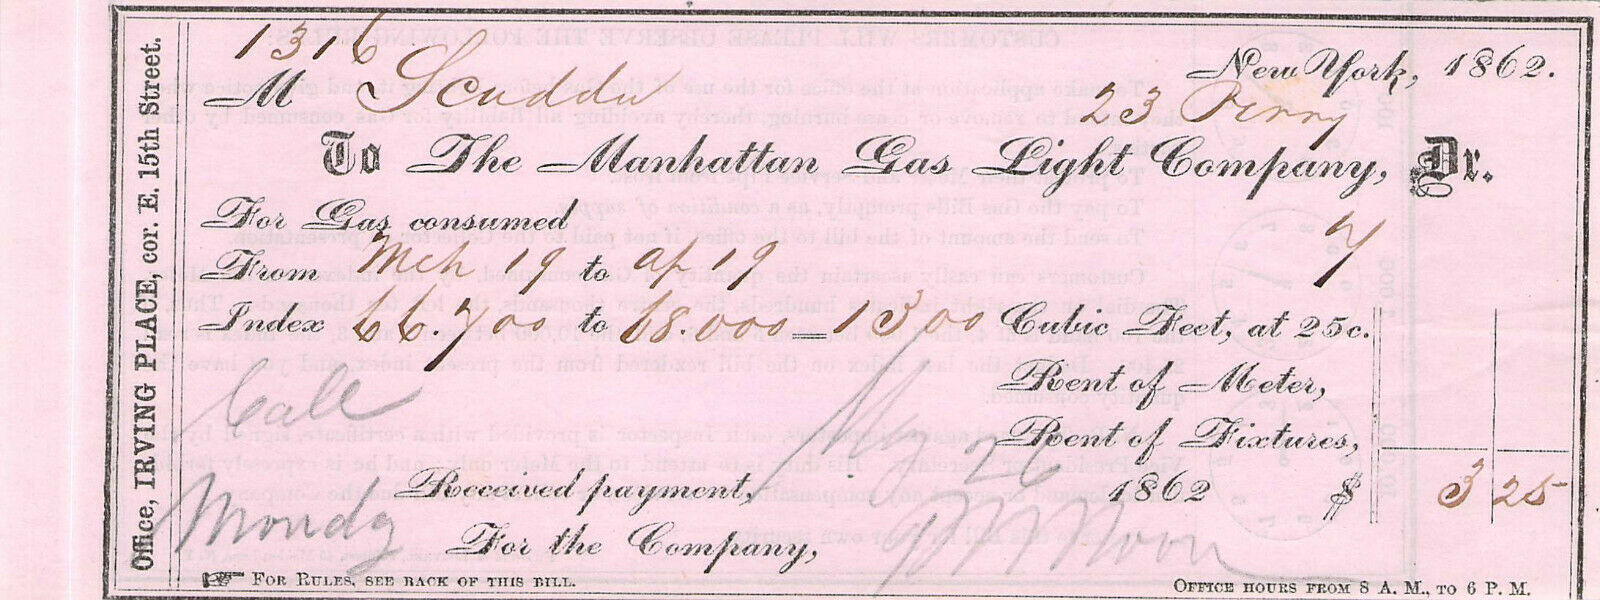 1316
New York, 1862.
M Scudder 23 Perry
To The Manhattan Gas Light Company, Dr.
For Gas consumed
From Mch 19 to ap 19 7
Index 66.700 to 68.000 = 1300 Cubic Feet, at 25c.
Rent of Meter,
Call
Rent of Fixtures,
My 26
Received payment, 1862 $ 3 25
Monday
For the Company,
☞ FOR RULES, SEE BACK OF THIS BILL.
OFFICE HOURS FROM 8 A. M., TO 6 P. M.
Office, IRVING PLACE, cor. E. 15th Street.